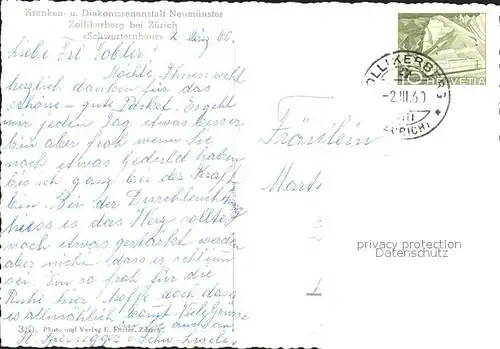 Kranken- u. Diakonissenanstalt Neumünster
Zollikerberg bei Zürich
«Schwesternhaus»
2. März 60.
Liebe Frl. Tobler!
Möchte Ihnen recht
herzlich danken für das
schöne - gute Päckel. Es geht
mir jeden Tag etwas besser
bin aber froh wenn Sie
noch etwas Geduld haben
bis ich ganz bei der Kraft
bin. Bei der Durchleuchtung
hiess es das Herz sollte
noch etwas gestärkt werden
aber nicht dass es schlimm
sei. Bin so froh für die
Ruhe hier, hoffe doch dass
es allmählich Viele Grüsse
310 Photo und Verlag E. Zürich
Schw. Gisela
HELVETIA
10
ZOLLIKERBERG
-2.III.60
(ZÜRICH)
Fräulein
Mart
privacy protection
Datenschutz